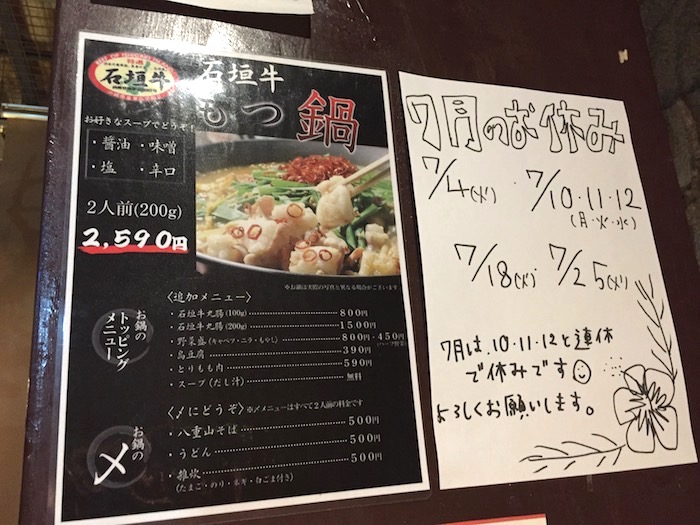 石垣牛
石垣牛
もつ鍋
お好きなスープでどうぞ！
・醤油・味噌
・塩・辛口
2人前(200g)
2,590円
※お鍋は実際の写真と異なる場合がございます
お鍋の
トッピング
メニュー
〈追加メニュー〉
・石垣牛丸腸(100g) 800円
・石垣牛丸腸(200g) 1500円
・野菜盛(キャベツ・ニラ・もやし) 800円・450円(ハーフ野菜)
・島豆腐 390円
・とりもも肉 590円
・スープ(だし汁) 無料
お鍋の
〆
〈〆にどうぞ〉※〆メニューはすべて2人前の料金です
・八重山そば 500円
・うどん 500円
・雑炊 500円
(たまご・のり・ネギ・白ごま付き)
7月のお休み
7/4(火) ・7/10・11・12
(月・火・水)
7/18(火) 7/25(火)
7月は、10・11・12と連休
で休みです
よろしくお願いします。